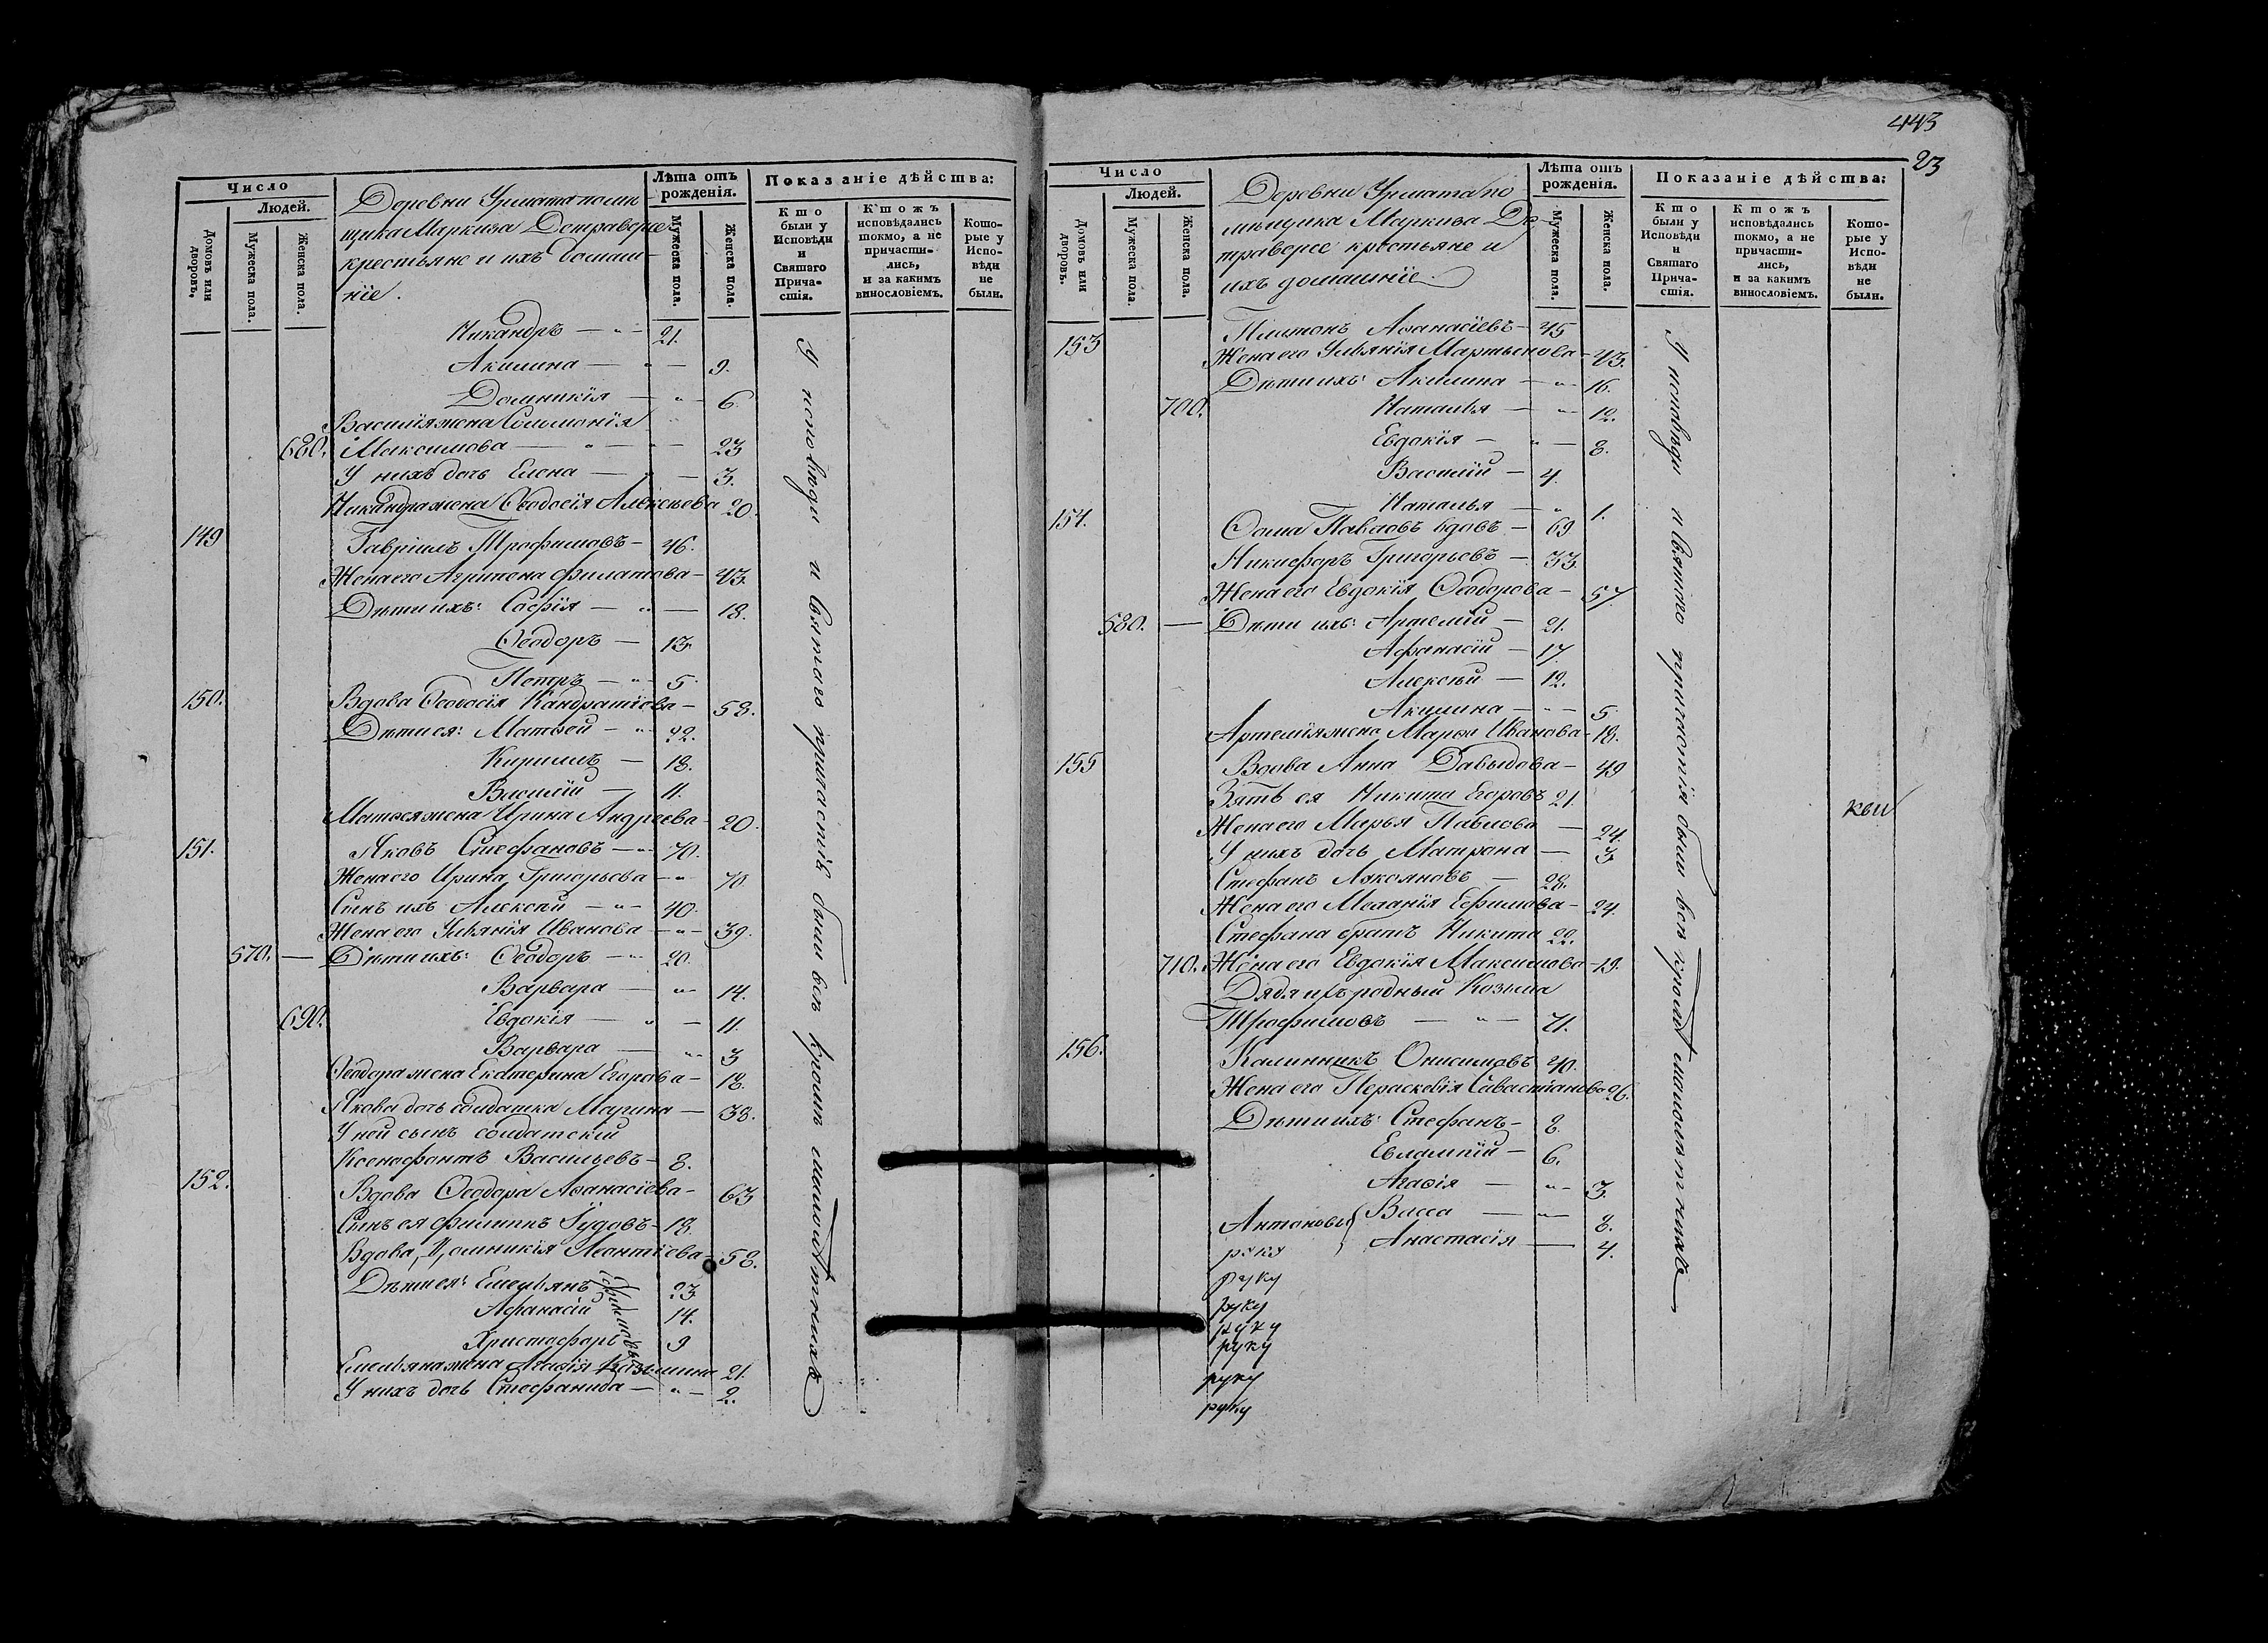 Число
Людей.
Домовъ или дворовъ.
Мужеска пола.
Женска пола.
Деревни Урмата помѣ
щика Маркиза Детраверсе
крестьяне и ихъ домаш
нїе.
Лѣта отъ рожденія.
Мужеска пола.
Женска пола.
Показаніе дѣйства:
Кто были у Исповѣди и Святаго Причастія.
Ктожъ исповѣдались токмо, а не причастились, и за какимъ винословіемъ.
Которые у Исповѣди не были.
Никандръ — 21.
Акилина — 9.
Домникїя — 6.
Василїя жена Соломонїя
680. Максимова — 23
У нихъ дочь Елена — 3.
Никандра жена Ѳеодосїя Алексѣева 20.
149 Гаврїилъ Трофимовъ — 46.
Жена его Агрипена Филатова — 43.
Дѣти ихъ: Софїя — 18.
Ѳеодоръ — 13.
Петръ — 5.
150. Вдова Ѳеодосїя Кандратїева — 58.
Дѣти ея: Матвей — 22.
Кириллъ — 18.
Василїй — 11.
Матвея жена Ирина Андреева 20.
151. Яковъ Стефановъ — 70.
Жена его Ирина Григорьева — 70.
Сынъ ихъ Алексѣй — 40.
Жена его Ульянїя Иванова — 39.
570. — Дѣти ихъ: Ѳеодоръ — 20.
Варвара — 14.
690. Евдокїя — 11.
Варвара — 3
Ѳеодора жена Екатерина Егорова — 18.
Якова дочь солдатка Марина — 38.
У ней сынъ солдатскїй
Ксенофонтъ Васильевъ — 8.
152. Вдова Ѳеодора Аѳанасїева — 63
Сынъ ея Филиппъ Гудовъ — 18.
Вдова Домникїя Леонтїева — 58.
Дѣти ея: Емельянъ 23
Афанасїй 14.
Христофоръ 9
Ефимовы
Емельяна жена Агафїя 21.
У нихъ дочь Стефанида — 2.
У исповѣди и святаго причастїя были всѣ кромѣ малолѣтнихъ
443
23
Число
Людей.
Домовъ или дворовъ.
Мужеска пола.
Женска пола.
Деревни Урмата по
мѣщика Маркиза Де
траверсе крестьяне и
ихъ домашнїе.
Лѣта отъ рожденія.
Мужеска пола.
Женска пола.
Показаніе дѣйства:
Кто были у Исповѣди и Святаго Причастія.
Ктожъ исповѣдались токмо, а не причастились, и за какимъ винословіемъ.
Которые у Исповѣди не были.
153 Платонъ Аѳанасїевъ — 45
Жена его Ульянїя Мартынова — 43.
Дѣти ихъ: Акилина — 16.
700. Наталья — 12.
Евдокїя — 8.
Василїй — 4.
Наталья — 1.
154. Ѳома Павловъ вдовъ — 69
Никифоръ Григорьевъ — 33.
Жена его Евдокїя Ѳеодорова — 57.
580. — Дѣти ихъ: Артемїй — 21.
Афанасїй — 17.
Алексѣй — 12.
Акилина — 5.
Артемїя жена Марья Иванова — 18.
155 Вдова Анна Давыдова — 49
Зять ея Никита Егоровъ 21.
Жена его Марья Павлова — 24.
У нихъ дочь Матрона — 3.
Стефанъ — 28.
Жена его Меланїя Ефимова — 24.
Стефана братъ Никита 22.
710. Жена его Евдокїя Максимова — 19.
Дядя ихъ родный Козьма
Трофимовъ — 71.
156. Калинникъ Онисимовъ 40.
Жена его Перасковїя Савастїанова 26.
Дѣти ихъ: Стефанъ — 8.
Евлампїй — 6.
Агафїя — 3.
Антоновы Васса — 8.
руку Анастасїя — 4.
руку
руку
руку
руку
руку
руку
У исповѣди и святаго причастїя были всѣ кромѣ малолѣтнихъ